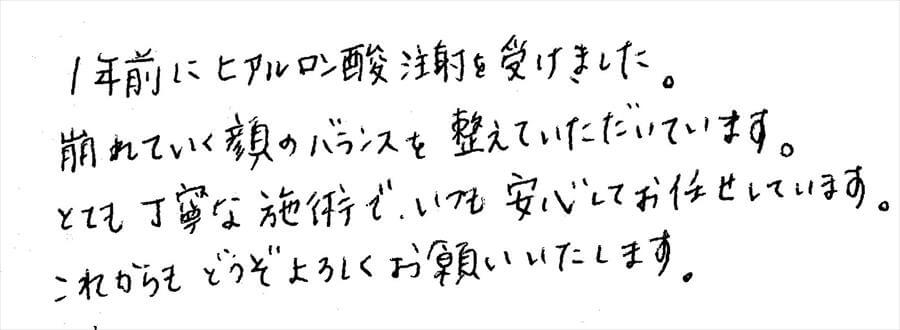 1年前にヒアルロン酸注射を受けました。
崩れていく顔のバランスを整えていただいています。
とても丁寧な施術で、いつも安心してお任せしています。
これからもどうぞよろしくお願いいたします。